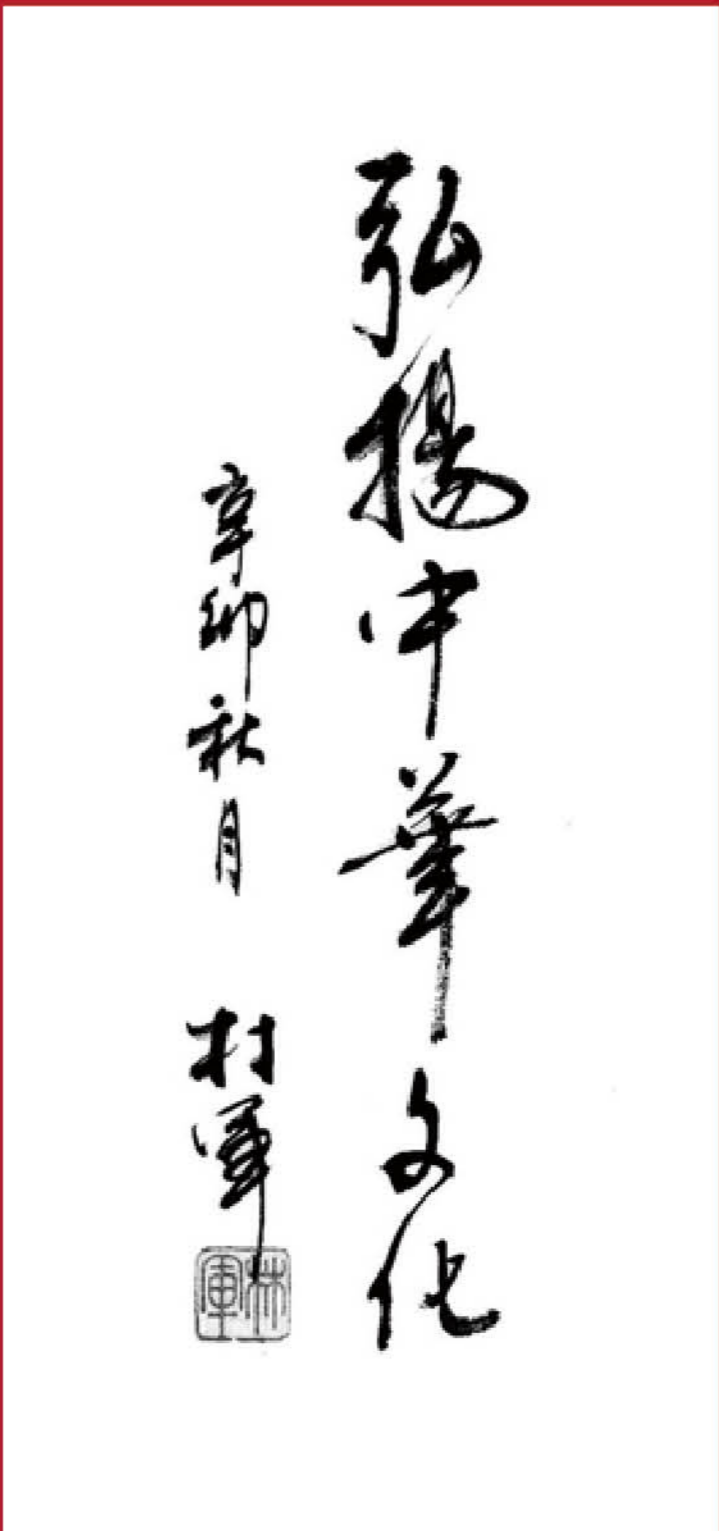 弘揚中華文化
辛卯秋月 林軍
林軍